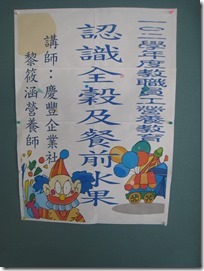 一〇二學年度教職員工營養教育
認識全穀及餐前水果
講師：慶豐企業社
黎筱涵營養師